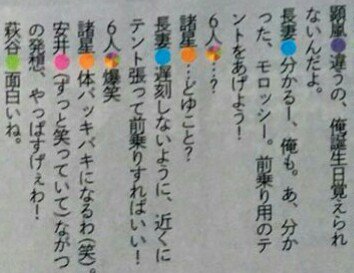 顕嵐●違うの、俺誕生日覚えられ
ないんだよ。
長妻●分かるー、俺も。あ、分か
った、モロッシー。前乗り用のテ
ントをあげよう！
6人●…？
諸星●…どゆこと？
長妻●遅刻しないように、近くに
テント張って前乗りすればいい！
6人●爆笑
諸星●体バッキバキになるわ(笑)。
安井●(ずっと笑っていて)ながつ
の発想、やっぱすげぇわ！
萩谷●面白いね。